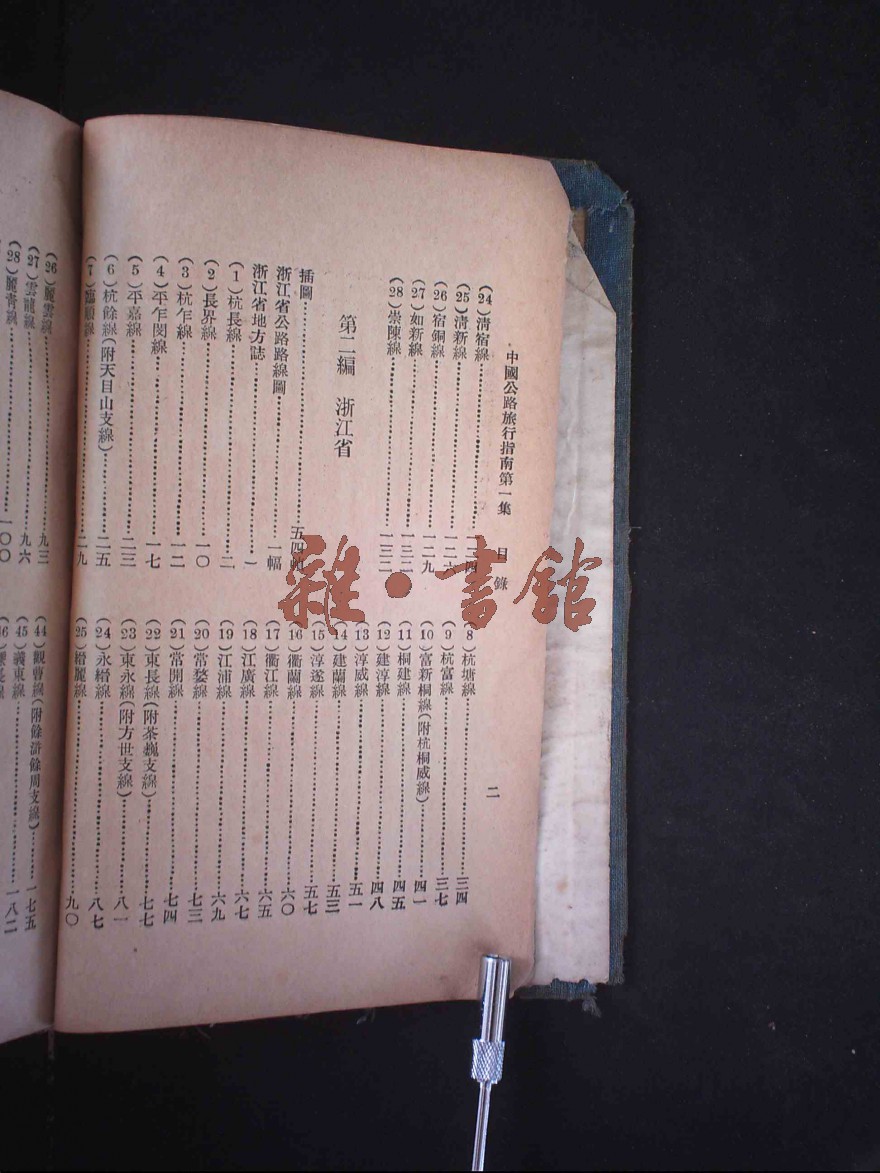 中國公路旅行指南第一集 目錄 二
(24)清宿線
(25)清新線……一二六
(26)宿銅線……一二九
(27)如新線
(28)崇陳線……一三二
第二編 浙江省
插圖……五四幀
浙江省公路路線圖……一幅
浙江省地方誌……一
(1)杭長線……二
(2)長界線……一〇
(3)杭乍線……一二
(4)平乍閔線……一七
(5)平嘉線……二三
(6)杭餘線(附天目山支線)……二五
(7)臨順線……二九
(8)杭塘線……三四
(9)杭富線……三七
(10)富新桐線(附杭桐威線)……四一
(11)桐建線……四五
(12)建淳線……四八
(13)淳威線……五一
(14)建蘭線……五三
(15)淳遂線……五七
(16)衢蘭線……六〇
(17)衢江線……六五
(18)江廣線……六七
(19)江浦線……六九
(20)常婺線……七三
(21)常開線……七四
(22)東長線(附茶巍支線)……七七
(23)東永線(附方世支線)……八一
(24)永縉線……八七
(25)縉麗線……九〇
(26)麗雲線……九三
(27)雲龍線……九六
(28)麗青線……一〇〇
(44)觀曹線(附餘滸餘周支線)……一七五
(45)義東線……一八二
雜·書館